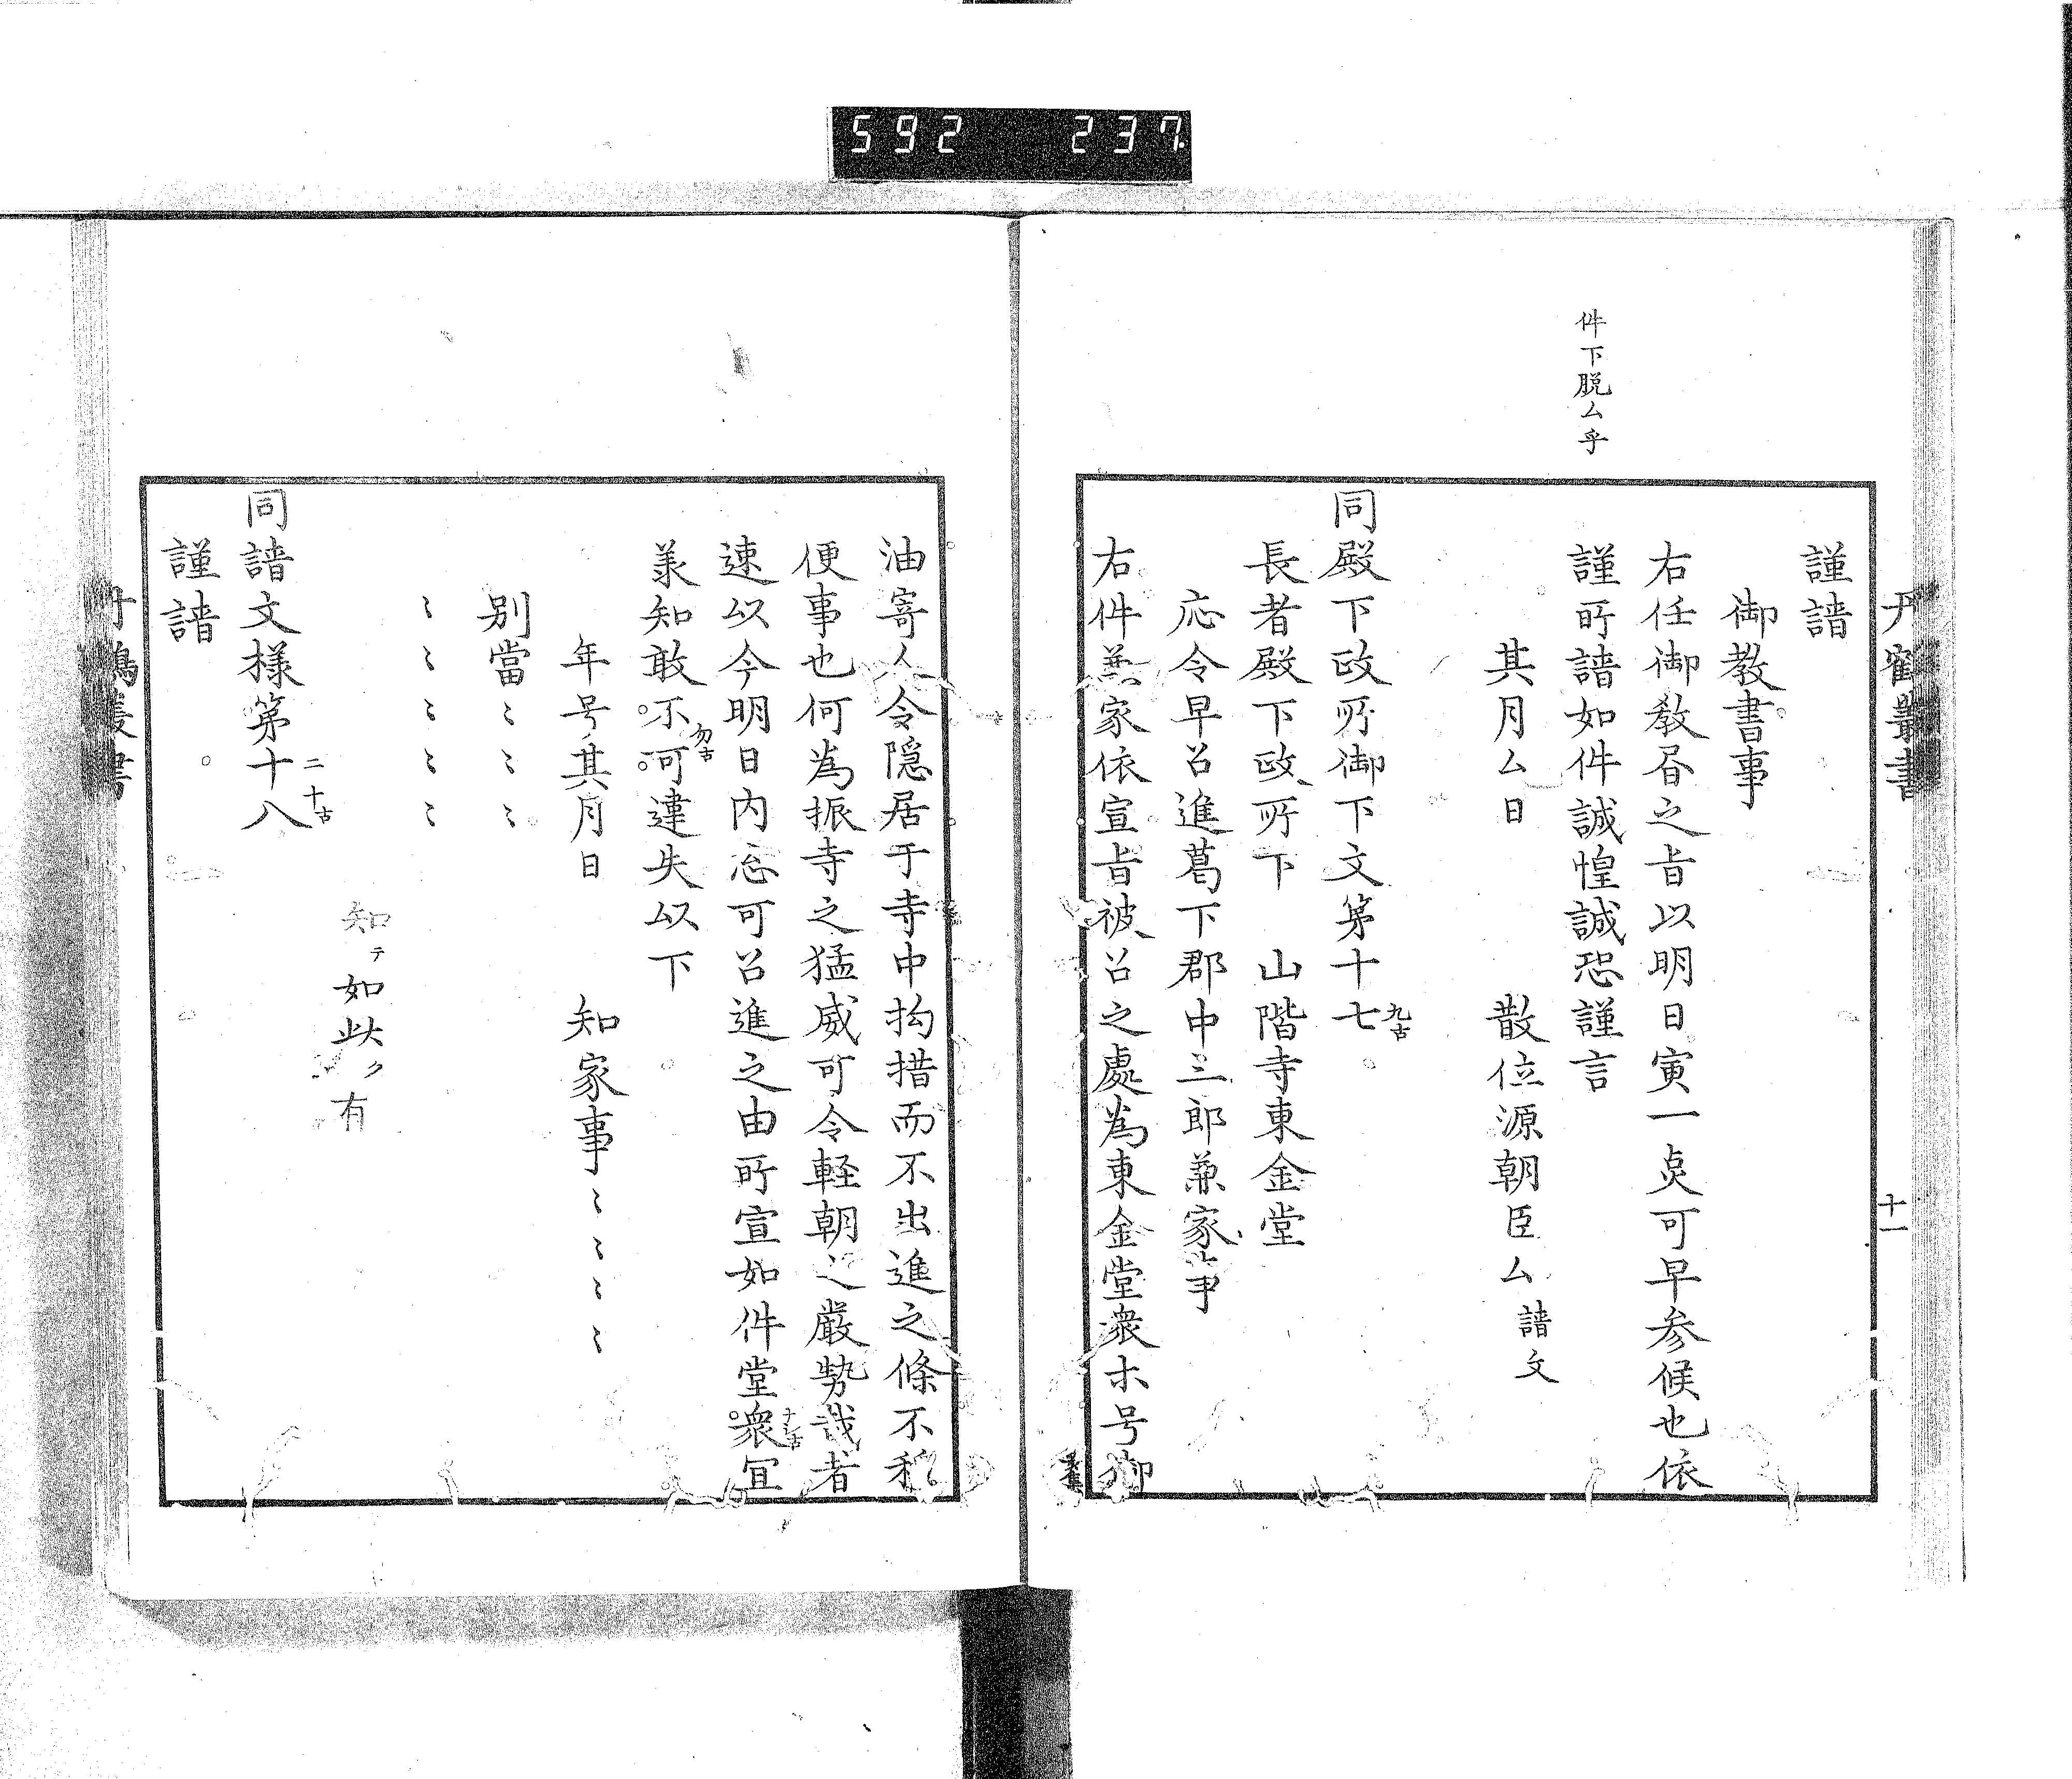 592 237
丹鶴叢書
十一
件下脱ム乎
謹請
御教書事
右任御教書之旨以明日寅一点可早参候也依
謹所請如件誠惶誠恐謹言
其月ム日 散位源朝臣ム請文
同殿下政所御下文第十七 九古
長者殿下政所下 山階寺東金堂
応令早召進葛下郡中三郎兼家事
右件兼家依宣旨被召之處為東金堂衆木号御
油寄人令隠居于寺中拘措而不出進之條不穏
便事也何為振寺之猛威可令軽朝之厳勢哉者
速以今明日内忩可召進之由所宣如件堂衆冝
羕知敢不可違失以下
勿古
年号其月日 知家事〻〻〻〻
別當〻〻〻
〻〻〻〻〻
知テ如此ク有
同請文様第十八 二十古
謹請
丹鶴叢書